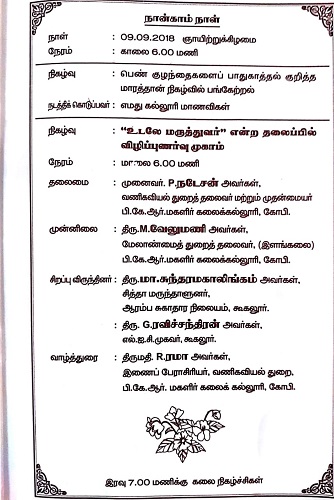 நான்காம் நாள்
நாள் : 09.09.2018 ஞாயிற்றுகிழமை
நேரம் : காலை 6.00 மணி
நிகழ்வு : பெண் குழந்தைகளைப் பாதுகாத்தல் குறித்த
மாரத்தான் நிகழ்வில் பங்கேற்றல்
நடத்திக் கொடுப்பவர் : எமது கல்லூரி மாணவிகள்
நிகழ்வு : “உடலே மருத்துவர்” என்ற தலைப்பில்
விழிப்புணர்வு முகாம்
நேரம் : மாலை 6.00 மணி
தலைமை : முனைவர். P.நடேசன் அவர்கள்,
வணிகவியல் துறைத் தலைவர் மற்றும் முதன்மையர்
பி.கே.ஆர்.மகளிர் கலைக்கல்லூரி, கோபி.
முன்னிலை : திரு.M.வேலுமணி அவர்கள்,
மேலாண்மைத் துறைத் தலைவர், (இளங்கலை)
பி.கே.ஆர்.மகளிர் கலைக்கல்லூரி, கோபி.
சிறப்பு விருந்தினர் : திரு.மா.சுந்தரமகாலிங்கம் அவர்கள்,
சித்தா மருந்தாளுனர்,
ஆரம்ப சுகாதார நிலையம், கூகலூர்.
: திரு. G.ரவிச்சந்திரன் அவர்கள்,
எல்.ஐ.சி.முகவர், கூகலூர்.
வாழ்த்துரை : திருமதி. R.ரமா அவர்கள்,
இணைப் பேராசிரியர், வணிகவியல் துறை,
பி.கே.ஆர். மகளிர் கலைக் கல்லூரி, கோபி.
இரவு 7.00 மணிக்கு கலை நிகழ்ச்சிகள்